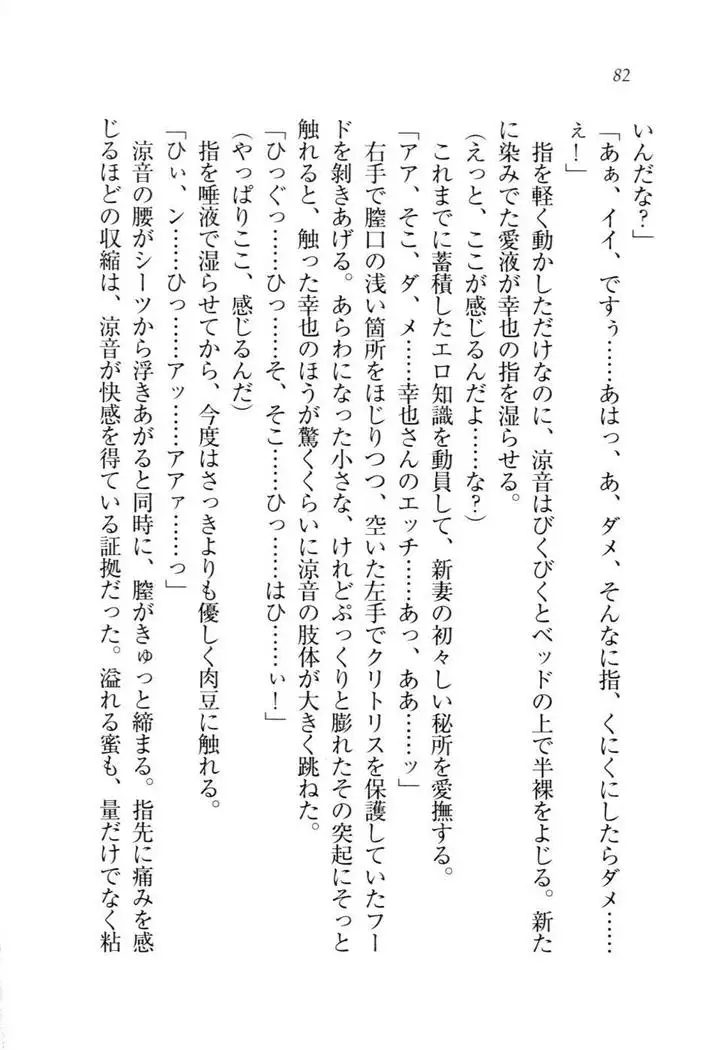 82
いんだな？」
「あぁ、イイ、ですぅ……あはっ、あ、ダメ、そんなに指、くにくにしたらダメ……
ぇ！」
指を軽く動かしただけなのに、涼音はびくびくとベッドの上で半裸をよじる。新た
に染みでた愛液が幸也の指を湿らせる。
（えっと、ここが感じるんだよ……な？）
これまでに蓄積したエロ知識を動員して、新妻の初々しい秘所を愛撫する。
「アア、そこ、ダ、メ……幸也さんのエッチ……あっ、ああ……ッ」
右手で膣口の浅い箇所をほじりつつ、空いた左手でクリトリスを保護していたフー
ドを剝きあげる。あらわになった小さな、けれどぷっくりと膨れたその突起にそっと
触れると、触った幸也のほうが驚くくらいに涼音の肢体が大きく跳ねた。
「ひっぐっ……ひっ……そ、そこ……ひっ……はひ……ぃ！」
（やっぱりここ、感じるんだ）
指を唾液で湿らせてから、今度はさっきよりも優しく肉豆に触れる。
「ひぃ、ン……ひっ……アッ……アアァ……っ」
涼音の腰がシーツから浮きあがると同時に、膣がきゅっと締まる。指先に痛みを感
じるほどの収縮は、涼音が快感を得ている証拠だった。溢れる蜜も、量だけでなく粘